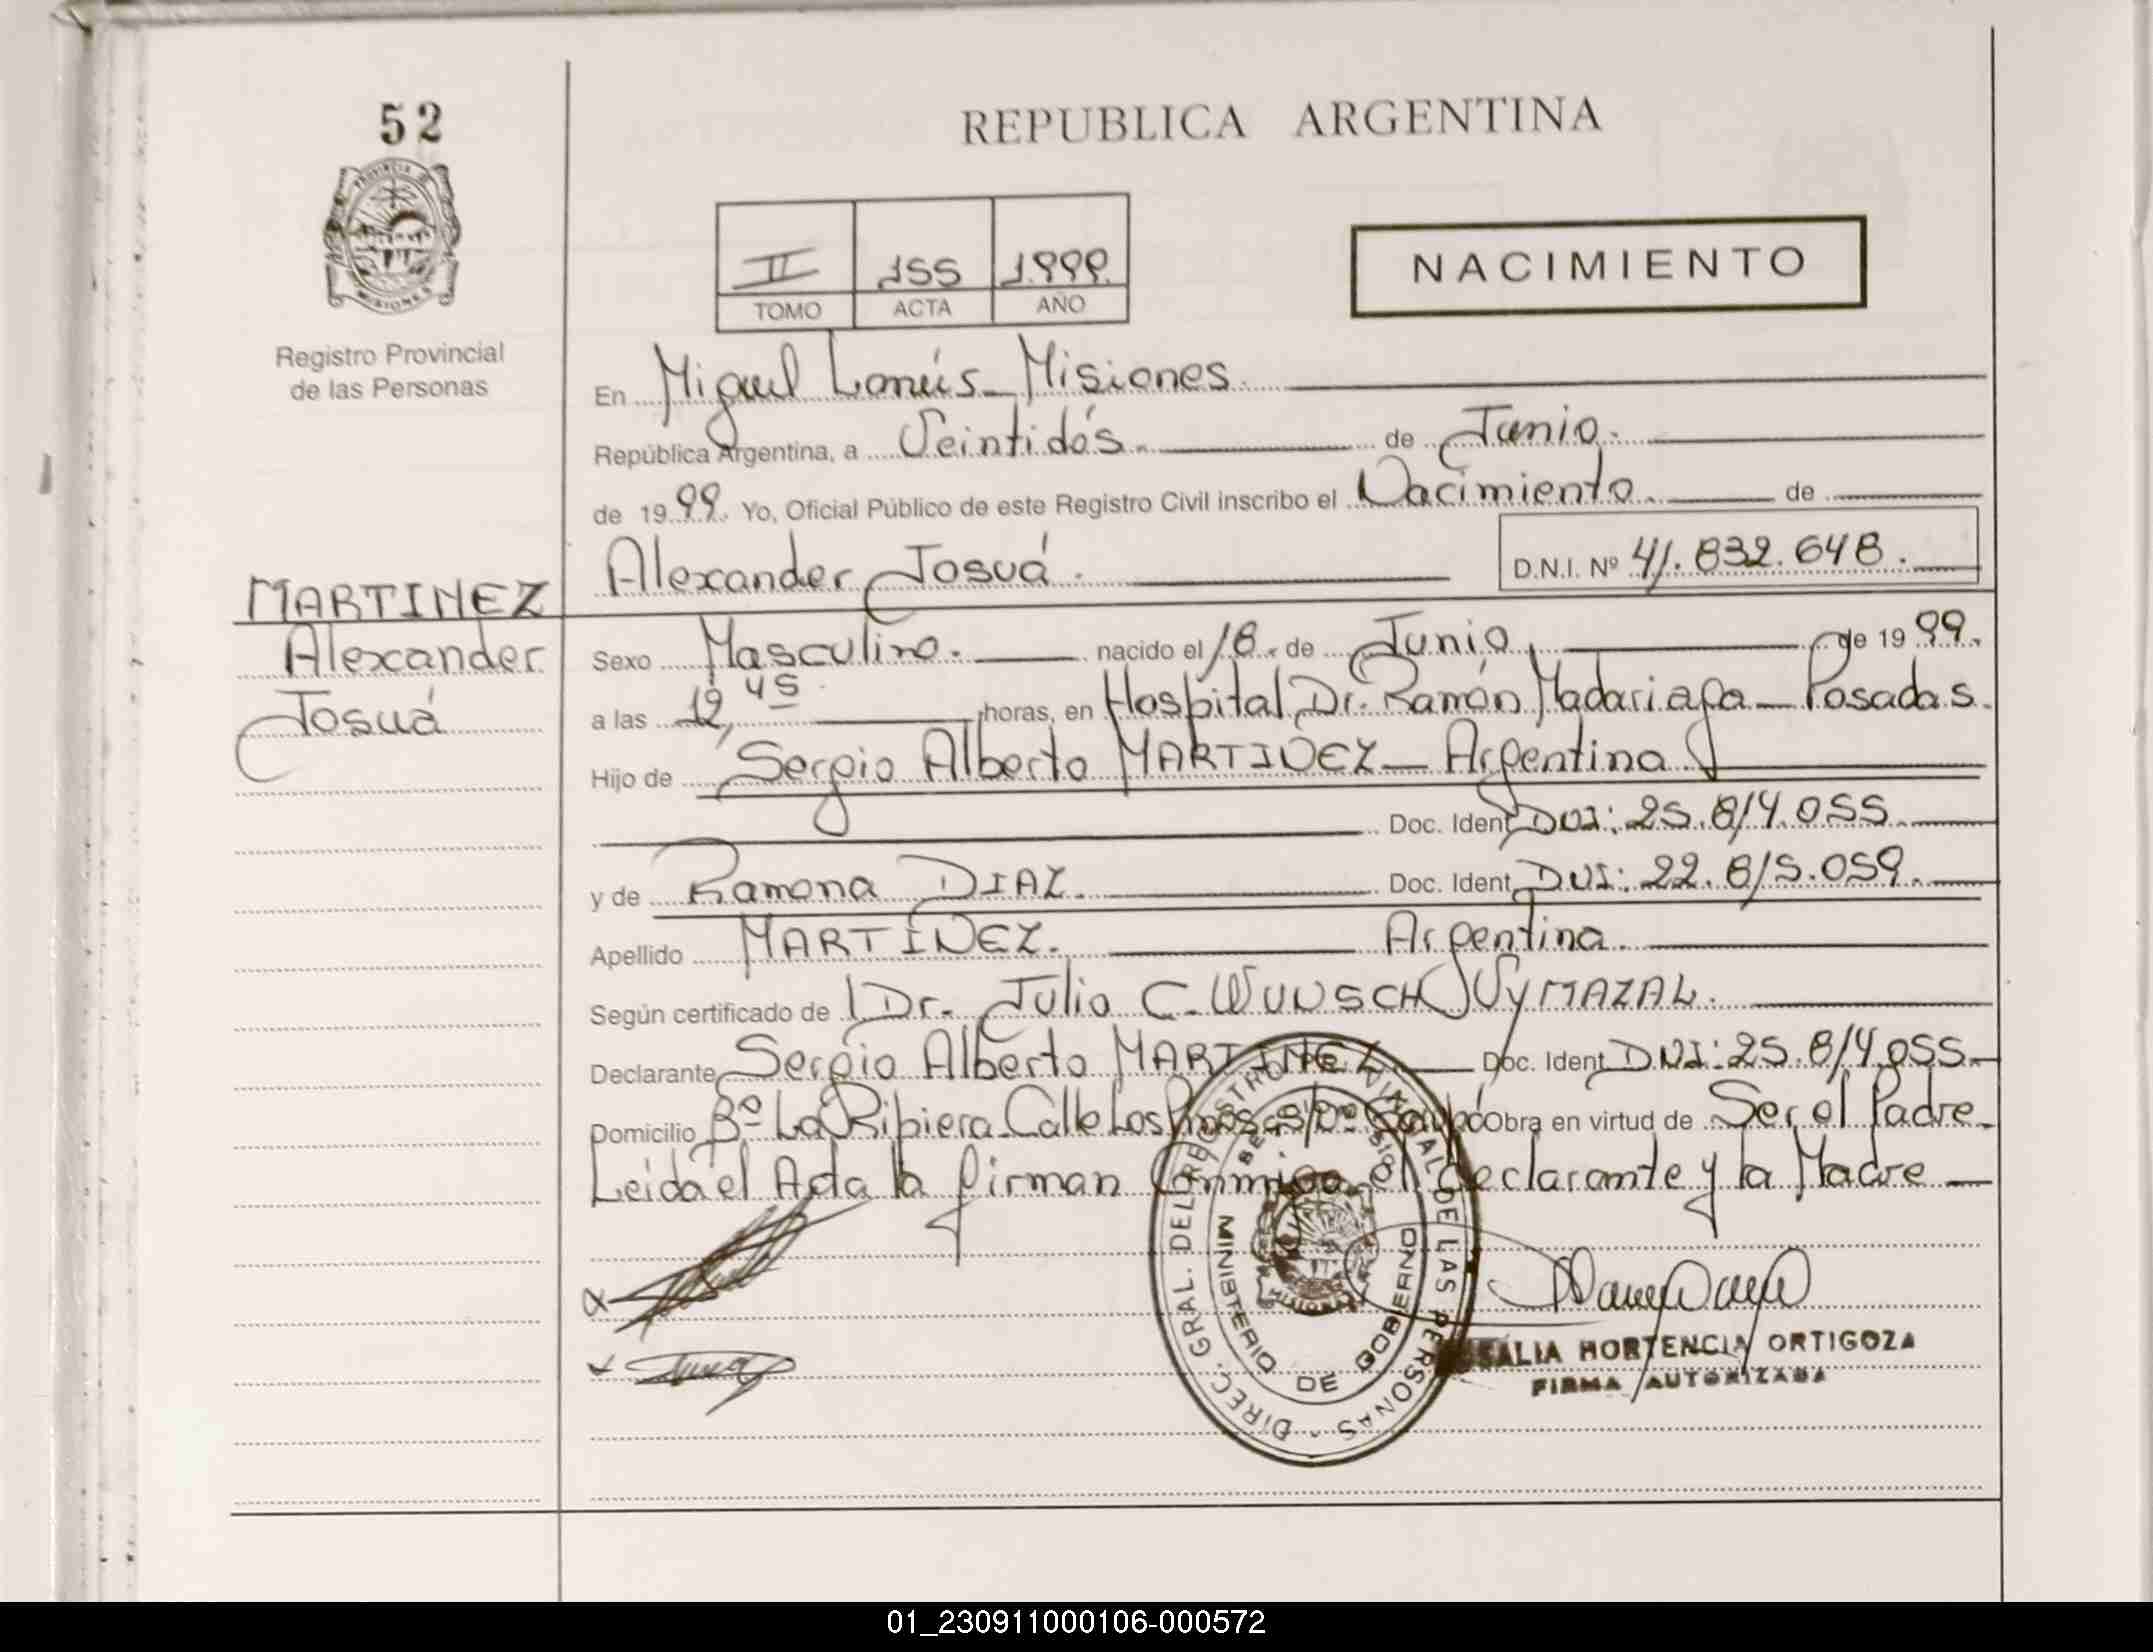 52
REPUBLICA ARGENTINA
II 155 1.999.
TOMO ACTA AÑO
NACIMIENTO
Registro Provincial
de las Personas
En Miguel Lanús - Misiones.
República Argentina, a Veintidós. de Junio.
de 1999. Yo, Oficial Público de este Registro Civil inscribo el Nacimiento. de
Alexander Josuá. D.N.I. Nº 41.832.648.
MARTINEZ
Alexander
Josuá
Sexo Masculino. nacido el 18. de Junio. de 1999.
a las 12,45 horas, en Hospital Dr. Ramón Madariaga - Posadas.
Hijo de Sergio Alberto MARTINEZ - Argentina
Doc. Ident. DNI: 25.814.055.
y de Ramona DIAZ. Doc. Ident. DNI: 22.815.059.
Apellido MARTÍNEZ. Argentina.
Según certificado de Dr. Julio C. WUNSCH VYMAZAL.
Declarante Sergio Alberto MARTINEZ. Doc. Ident. DNI: 25.814.055.
Domicilio Bº La Ribiera Calle Los Pinos s/nº Garupá Obra en virtud de Ser el Padre.
Leida el Acta la firman Conmigo el declarante y la Madre
DIREC. GRAL. DEL REGISTRO PROVINCIAL DE LAS PERSONAS -
MINISTERIO DE GOBIERNO
MISIONES
ROSALIA HORTENCIA ORTIGOZA
FIRMA AUTORIZADA
01_230911000106-000572